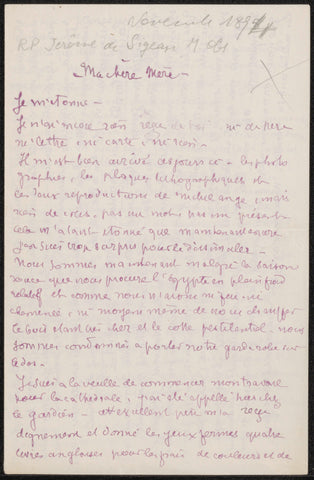 Novembre 189
RP Jérôme de
Ma chère Mère -
Je m'étonne -
Je n'ai encore rien reçu de toi ni de père
ni lettre, ni carte, ni rien.
Il m'est bien arrivé ces jours-ci les photo
graphies, les plaques lithographiques et
les deux reproductions de michel ange, mais
rien de vous, pas un mot,
cela m'a tant étonné que maintenant encore
j'en suis trop surpris pour le dissimuler -
Nous sommes maintenant malgré la saison
douce que nous procure l'Égypte en plein froid
relatif et comme nous n'avons ni feu ni
cheminée, ni moyen même de nous chauffer
le bois étant cher et le coke pestilentiel, nous
sommes condamnés à porter notre garde robe sur
le dos.
Je suis à la veille de commencer mon travail
pour la cathédrale, j'ai été appelé hier chez
le gardien - cet excellent père m'a reçu
dignement et donné les yeux fermés quatre
livres anglaises pour les frais de couleurs et de